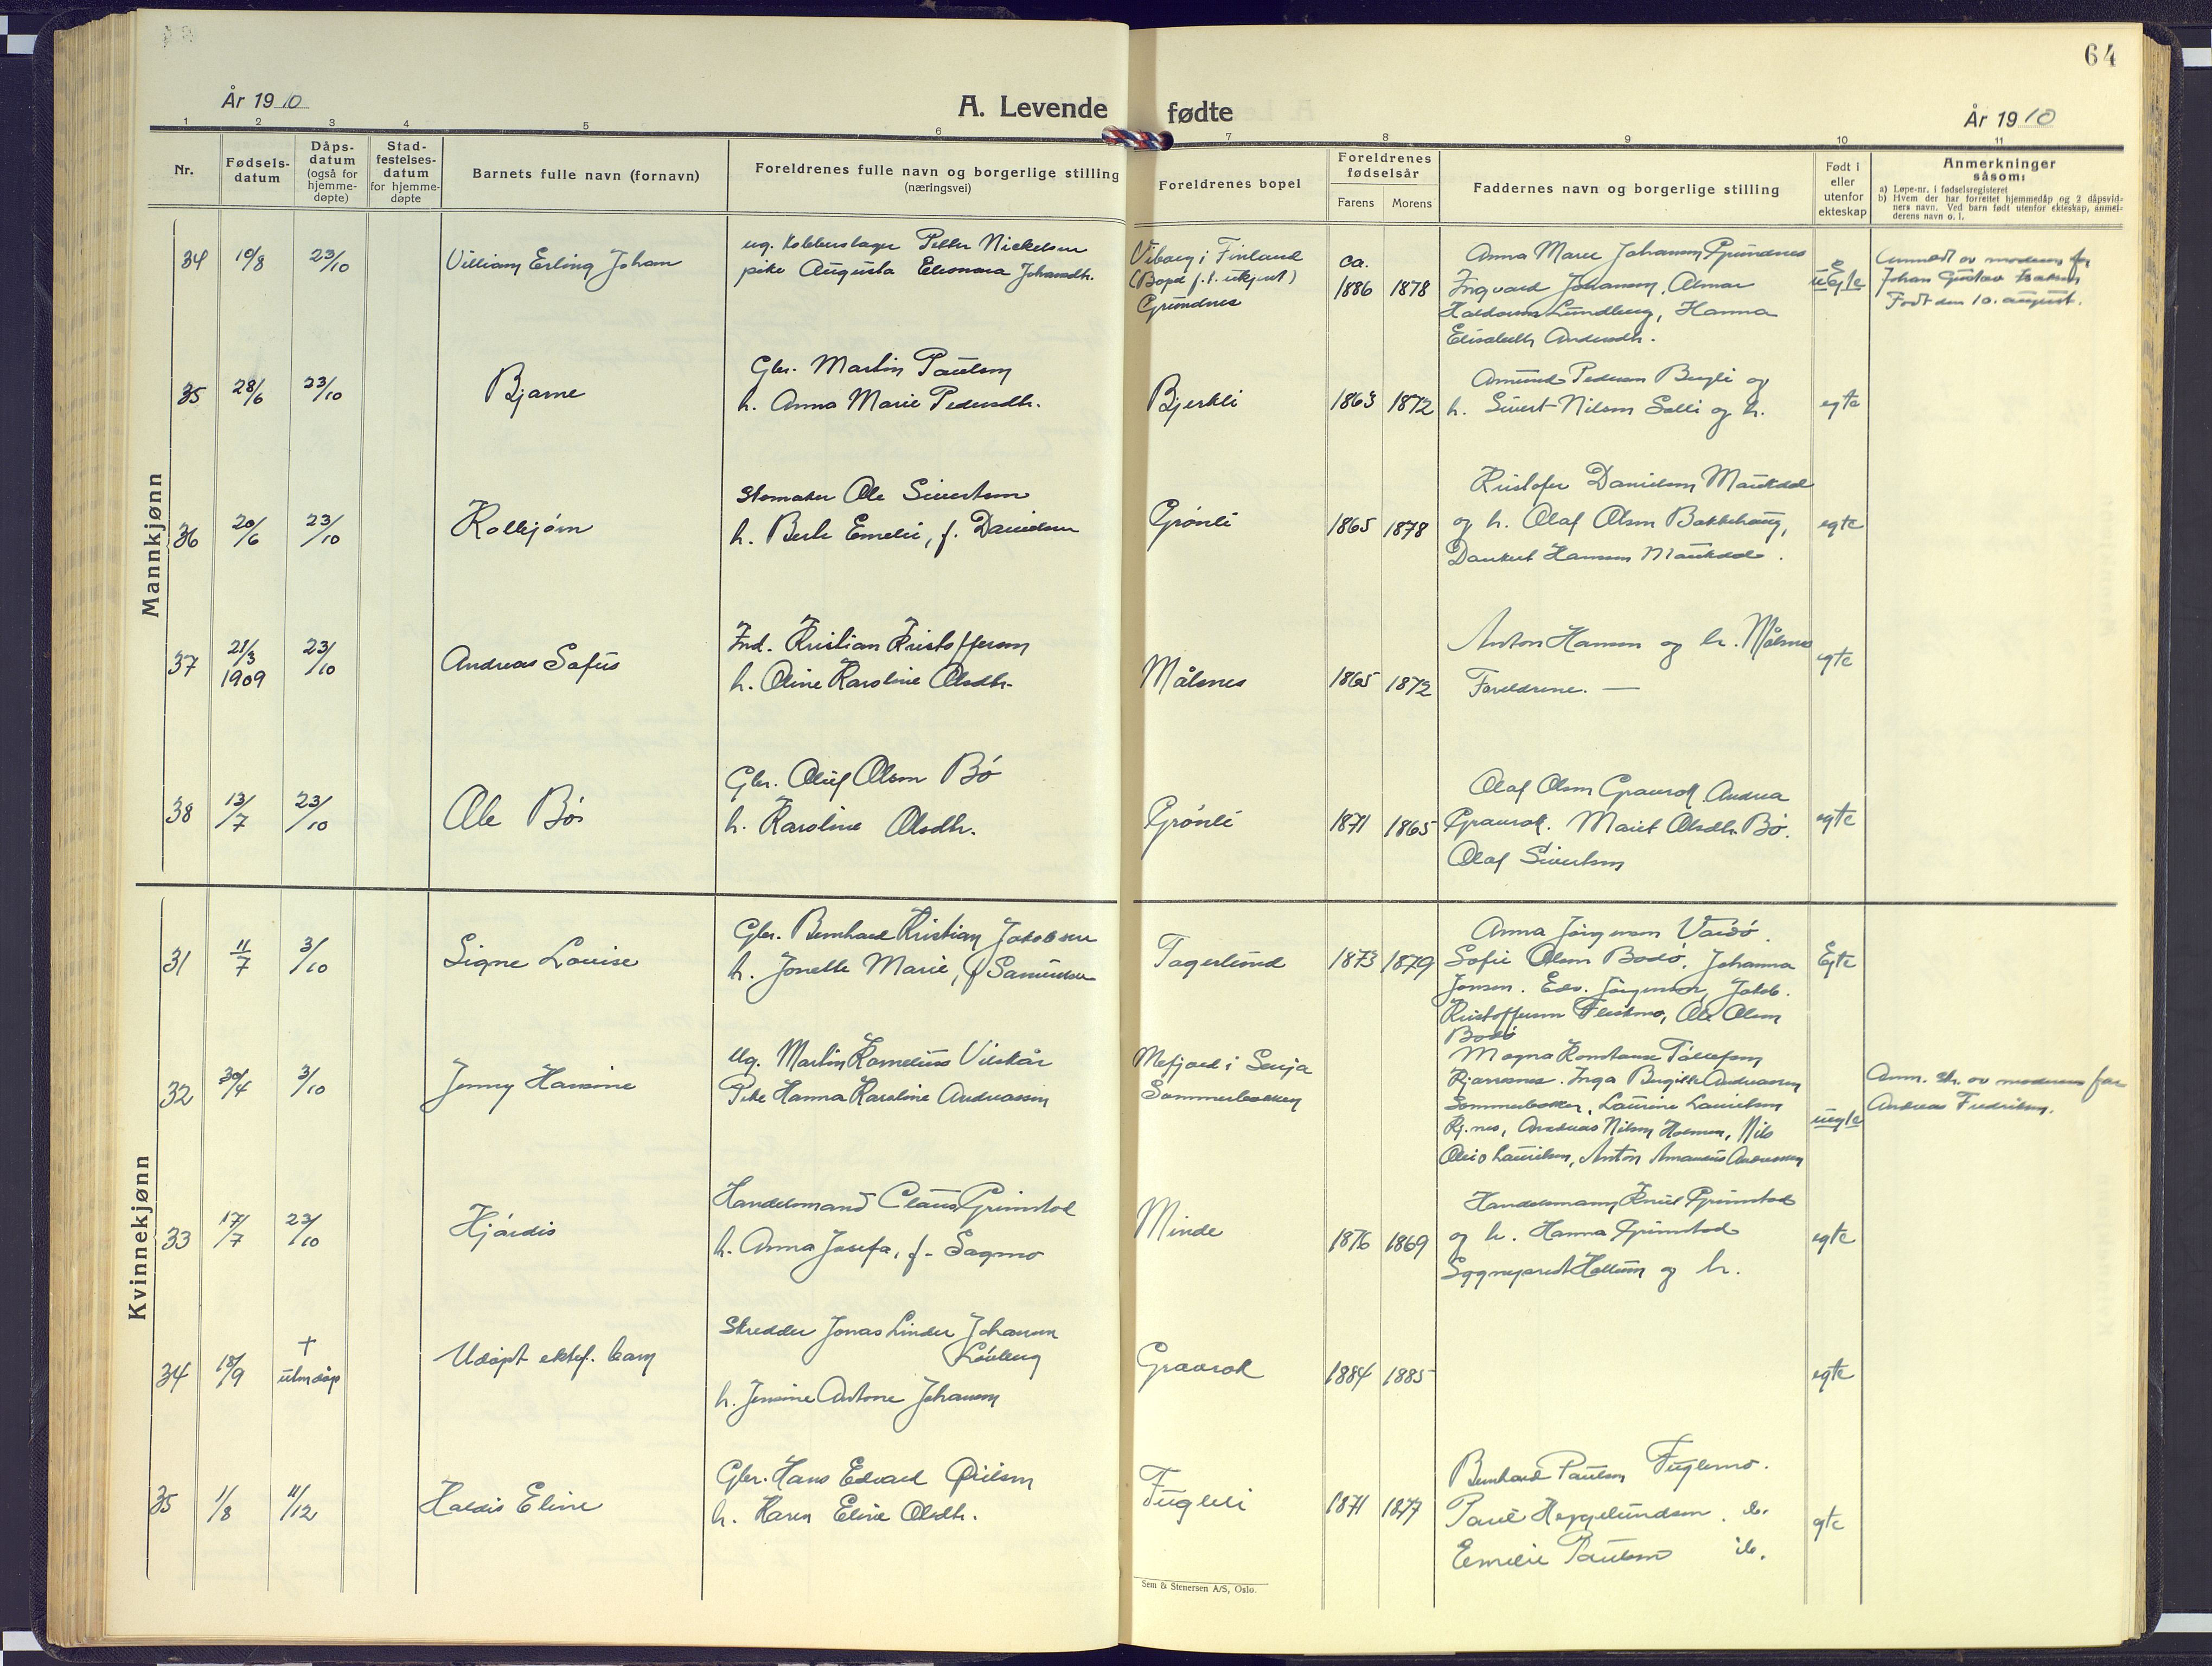 64
År 1910
A. Levende fødte
År 1910
1 2 3 4 5 6 7 8 9 10 11
Nr.
Fødsels-
datum
Dåps-
datum
(også for
hjemme-
døpte)
Stad-
festelses-
datum
for hjemme-
døpte
Barnets fulle navn (fornavn)
Foreldrenes fulle navn og borgerlige stilling
(næringsvei)
Foreldrenes bopel
Foreldrenes
fødselsår
Farens Morens
Faddernes navn og borgerlige stilling
Født i
eller
utenfor
ekteskap
Anmerkninger
såsom:
a) Løpe-nr. i fødselsregisteret
b) Hvem der har forrettet hjemmedåp og 2 dåpsvid-
ners navn. Ved barn født utenfor ekteskap, anmel-
derens navn o. l.
Mannkjønn
34 10/8 23/10 Villiam Erling Johan
ug. Kobberslager Petter Nickelsen
pike Augusta Eleonora Johansdtr.
Viborg i Finland
(Bopel f. t. ukjent)
Grundnes
ca.
1886 1878
Anna Marie Johansen Grundnes
Ingvard Johansen, Almar
Lundberg, Hanna
Elisabeth Andersdtr.
uegte
Anmeldt av moderen for
Johan Gustav
Født den 10. august.
35 28/6 23/10 Bjarne
Gbr. Martin Paulsen
h. Anna Marie Pedersdtr.
Bjerkli
1863 1872
Amund Pedersen Bergli og
h. Sivert Nilsen Solli og h.
egte
36 20/6 23/10 Kolbjörn
Skomaker Ole Sivertsen
h. Berte Emelie, f. Danielsen
Grönli
1865 1878
Kristofer Danielsen Maukdal
og h. Olaf Olsen Bakkehaug,
Dankert Hansen Maukdal.
egte
37 21/3 1909 23/10 Andreas Sofus
Ind. Kristian Kristoffersen
h. Oline Karoline Olsdtr.
Målsnes
1865 1872
Anton Hansen og h. Målsnes
Foreldrene. —
egte
38 13/7 23/10 Ole Bö
Gbr. Oluf Olsen Bö
h. Karoline Olsdtr.
Grönli
1871 1865
Olaf Olsen Gravrok Andrea
Gravrok. Marit Olsdtr. Bö.
Olaf Sivertsen
egte
Kvinnekjønn
31 11/7 3/10 Signe Louise
Gbr. Bernhard Kristian Jakobsen
h. Jonette Marie, f. Samuelsen
Tagerlund
1873 1879
Anna Jörgensen Vardö.
Sofie Olsen Bodö, Johanna
Jensen. Edv. Jörgensen, Jakob.
Kristoffersen Fleskmo, Ole Olsen
Bodö
Egte
32 30/4 3/10 Jenny Hansine
Ug. Martin Kornelius Vilskår
Pike Hanna Karoline Andreassen
Mefjord i Senja
Sommerbakken
Magna Konstanse Tollefsen
Inga Birgitte Andreassen
Sommerbakken, Laurine Lauritsen
Andreas Nilsen Holmen, Nils
Lauritsen, Anton Amandus Andreassen
uegte
Anm. skr. av moderens far
Andreas Fredriksen.
33 17/7 23/10 Hjördis
Handelsmand Claus Grimstad
h. Anna Josefa, f. Sagmo
Minde
1876 1869
Handelsmann Knut Grimstad
og h. Hanna Grimstad
Sogneprest Hellum og h.
egte
34 18/9 + uten dåp Udöpt ektef. barn
Skredder Jonas Linder Johansen
Lövberg
h. Jensine Antone Johansen
Gravrok
1884 1885
egte
35 1/8 11/12 Haldis Eline
Gbr. Hans Edvard
h. Karen Eline Olsdtr.
Fugleli
1871 1877
Bernhard Paulsen Fuglemo.
Paul Heggelundsen. ib.
Emelie Paulsen ib.
egte
Sem & Stenersen A/S, Oslo.